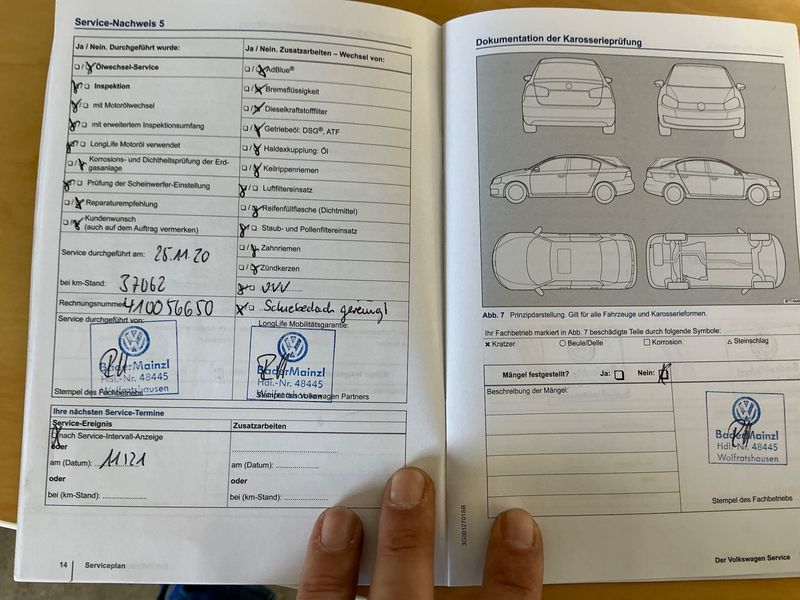 Service-Nachweis 5
Ja / Nein. Durchgeführt wurde:
Ölwechsel-Service
Inspektion
mit Motorölwechsel
mit erweitertem Inspektionsumfang
LongLife Motoröl verwendet
Korrosions- und Dichtheitsprüfung der Erd-
gasanlage
Prüfung der Scheinwerfer-Einstellung
Reparaturempfehlung
Kundenwunsch
(auch auf dem Auftrag vermerken)
Service durchgeführt am: 25.11.20
bei km-Stand: 37062
Rechnungsnummer 410056650
Service durchgeführt von:
BaderMainzl
Hdl.-Nr. 48445
Wolfratshausen
Stempel des Fachbetriebs
Ja / Nein. Zusatzarbeiten – Wechsel von:
AdBlue®
Bremsflüssigkeit
Dieselkraftstofffilter
Getriebeöl: DSG®, ATF
Haldexkupplung: Öl
Keilrippenriemen
Luftfiltereinsatz
Reifenfüllflasche (Dichtmittel)
Staub- und Pollenfiltereinsatz
Zahnriemen
Zündkerzen
UVV
Schiebedach gereinigt
LongLife Mobilitätsgarantie:
BaderMainzl
Hdl.-Nr. 48445
Wolfratshausen
Stempel des Volkswagen Partners
Ihre nächsten Service-Termine
Service-Ereignis
nach Service-Intervall-Anzeige
oder
am (Datum): 11.21
oder
bei (km-Stand):
Zusatzarbeiten
am (Datum):
oder
bei (km-Stand):
14 Serviceplan
Dokumentation der Karosserieprüfung
Abb. 7 Prinzipdarstellung. Gilt für alle Fahrzeuge und Karosserieformen.
Ihr Fachbetrieb markiert in Abb. 7 beschädigte Teile durch folgende Symbole:
Kratzer Beule/Delle Korrosion Steinschlag
Mängel festgestellt? Ja: Nein:
Beschreibung der Mängel:
BaderMainzl
Hdl.-Nr. 48445
Wolfratshausen
Stempel des Fachbetriebs
3G0012701SB
Der Volkswagen Service